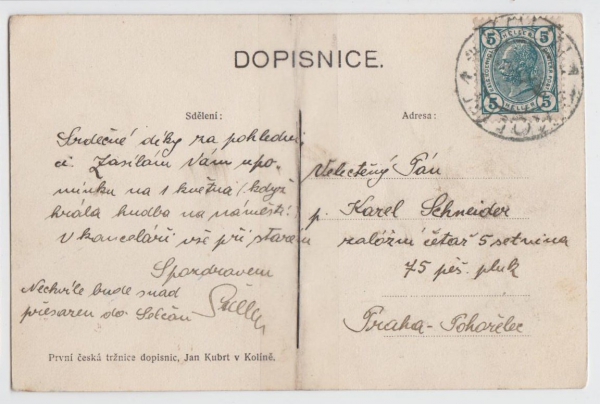 DOPISNICE.
5 HELLER 5
5 HELLER 5
Sdělení:
Srdečné díky za pohledni
ci. Zasílám Vám upo-
mínku na 1 května (když
hrála hudba na náměstí.)
V kanceláři vše při starém
S pozdravem
Nechvíle bude snad
přesazen do Selčan
Adresa:
Velectěný Pán
p. Karel Schneider
záložní četař 5 setnina
75 pěš. pluk
Praha-Pohořelec
První česká tržnice dopisnic, Jan Kubrt v Kolíně.